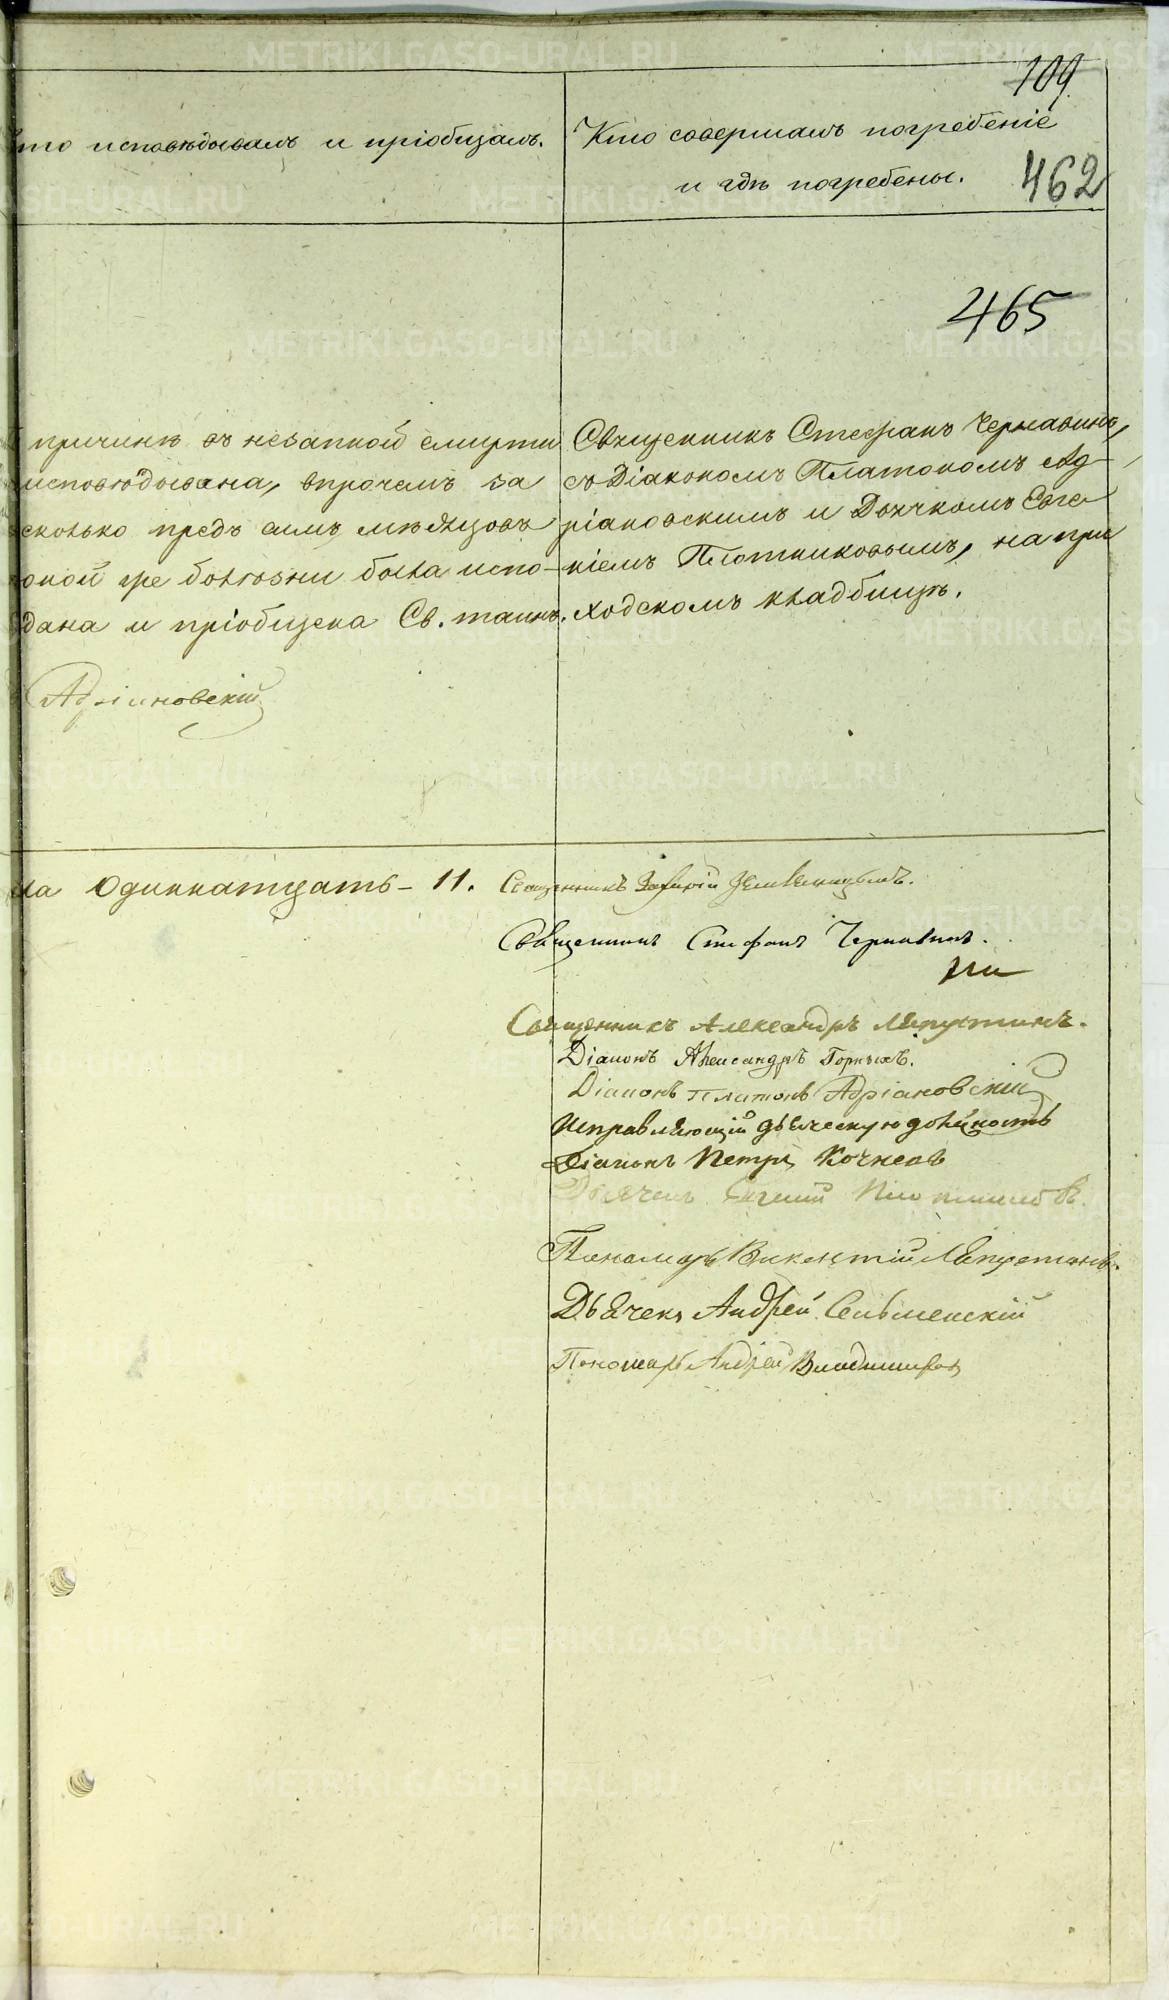 109
то исповѣдывалъ и пріобщалъ.
Кто совершалъ погребеніе
и гдѣ погребены.
462
465
причинѣ ея незапной смерти
исповѣдывана, впрочемъ за
сколько предъ симъ мѣсяцовъ
оной же болѣзни была испо-
дана и пріобщена Св. таинъ.
Адріановскій
Священникъ Стефанъ Чернавинъ,
съ Діакономъ Платономъ Ад-
ріановскимъ и Дьячкомъ Евге-
ніемъ Плотниковымъ, на при
ходскомъ кладбищѣ.
на Одиннатцать - 11.
Священникъ
Священникъ Стефанъ Чернавинъ.
Священникъ Александръ Ляпустинъ.
Діаконъ Александръ Горныхъ.
Діаконъ Платонъ Адріановскій
Исправляющій дьяческую должность
Діаконъ Петръ Кочневъ
Дьячекъ Евгеній Плотниковъ
Пономарь Викентій Ляпустинъ.
Дьячекъ Андрей Сельменскій
Пономарь Андрей Владимировъ
METRIKI.GASO-URAL.RU